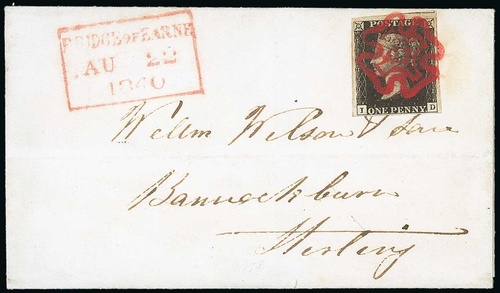 BRIDGE OF EARNE
AU 22
1840
POSTAGE
I D
ONE PENNY
Willm Wilson & Son
Bannockburn
Stirling